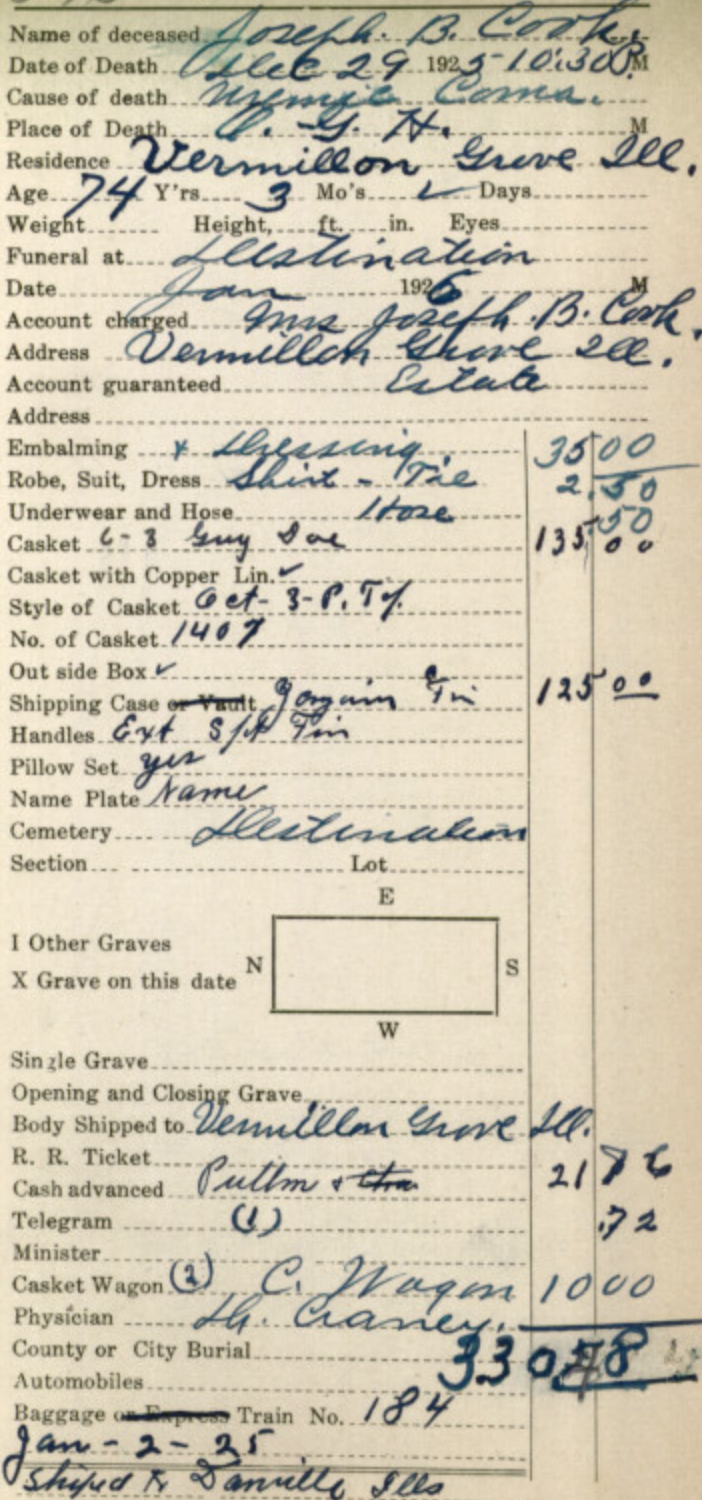 Name of deceased Joseph. B. Cook.
Date of Death Dec 29 1925 10:30 P.M
Cause of death Uremic Coma.
Place of Death O. G. H. M
Residence Vermillon Grove Ill.
Age 74 Y'rs 3 Mo's ✓ Days
Weight Height, ft. in. Eyes
Funeral at Destination
Date Jan 1926 M
Account charged Mrs Joseph. B. Cook.
Address Vermillon Grove Ill.
Account guaranteed Estate
Address
Embalming + Dressing 35 00
Robe, Suit, Dress Shirt - Tie 2.50
Underwear and Hose Hose .50
Casket 6-3 Guy Doe 135 00
Casket with Copper Lin. ✓
Style of Casket Oct- 3-P. T
No. of Casket 1407
Out side Box ✓
Shipping Case or Vault 125 00
Handles Ext Tin
Pillow Set yes
Name Plate Name
Cemetery Destination
Section Lot
E
I Other Graves
N S
X Grave on this date
W
Single Grave
Opening and Closing Grave
Body Shipped to Vermillon Grove Ill.
R. R. Ticket
Cash advanced Pullm 21 86
Telegram (1) .72
Minister
Casket Wagon (2) C. Wagon 10 00
Physician Dr. Craney.
County or City Burial 330 58
Automobiles
Baggage or Express Train No. 184
Jan - 2 - 25
Shiped to Danville Ills